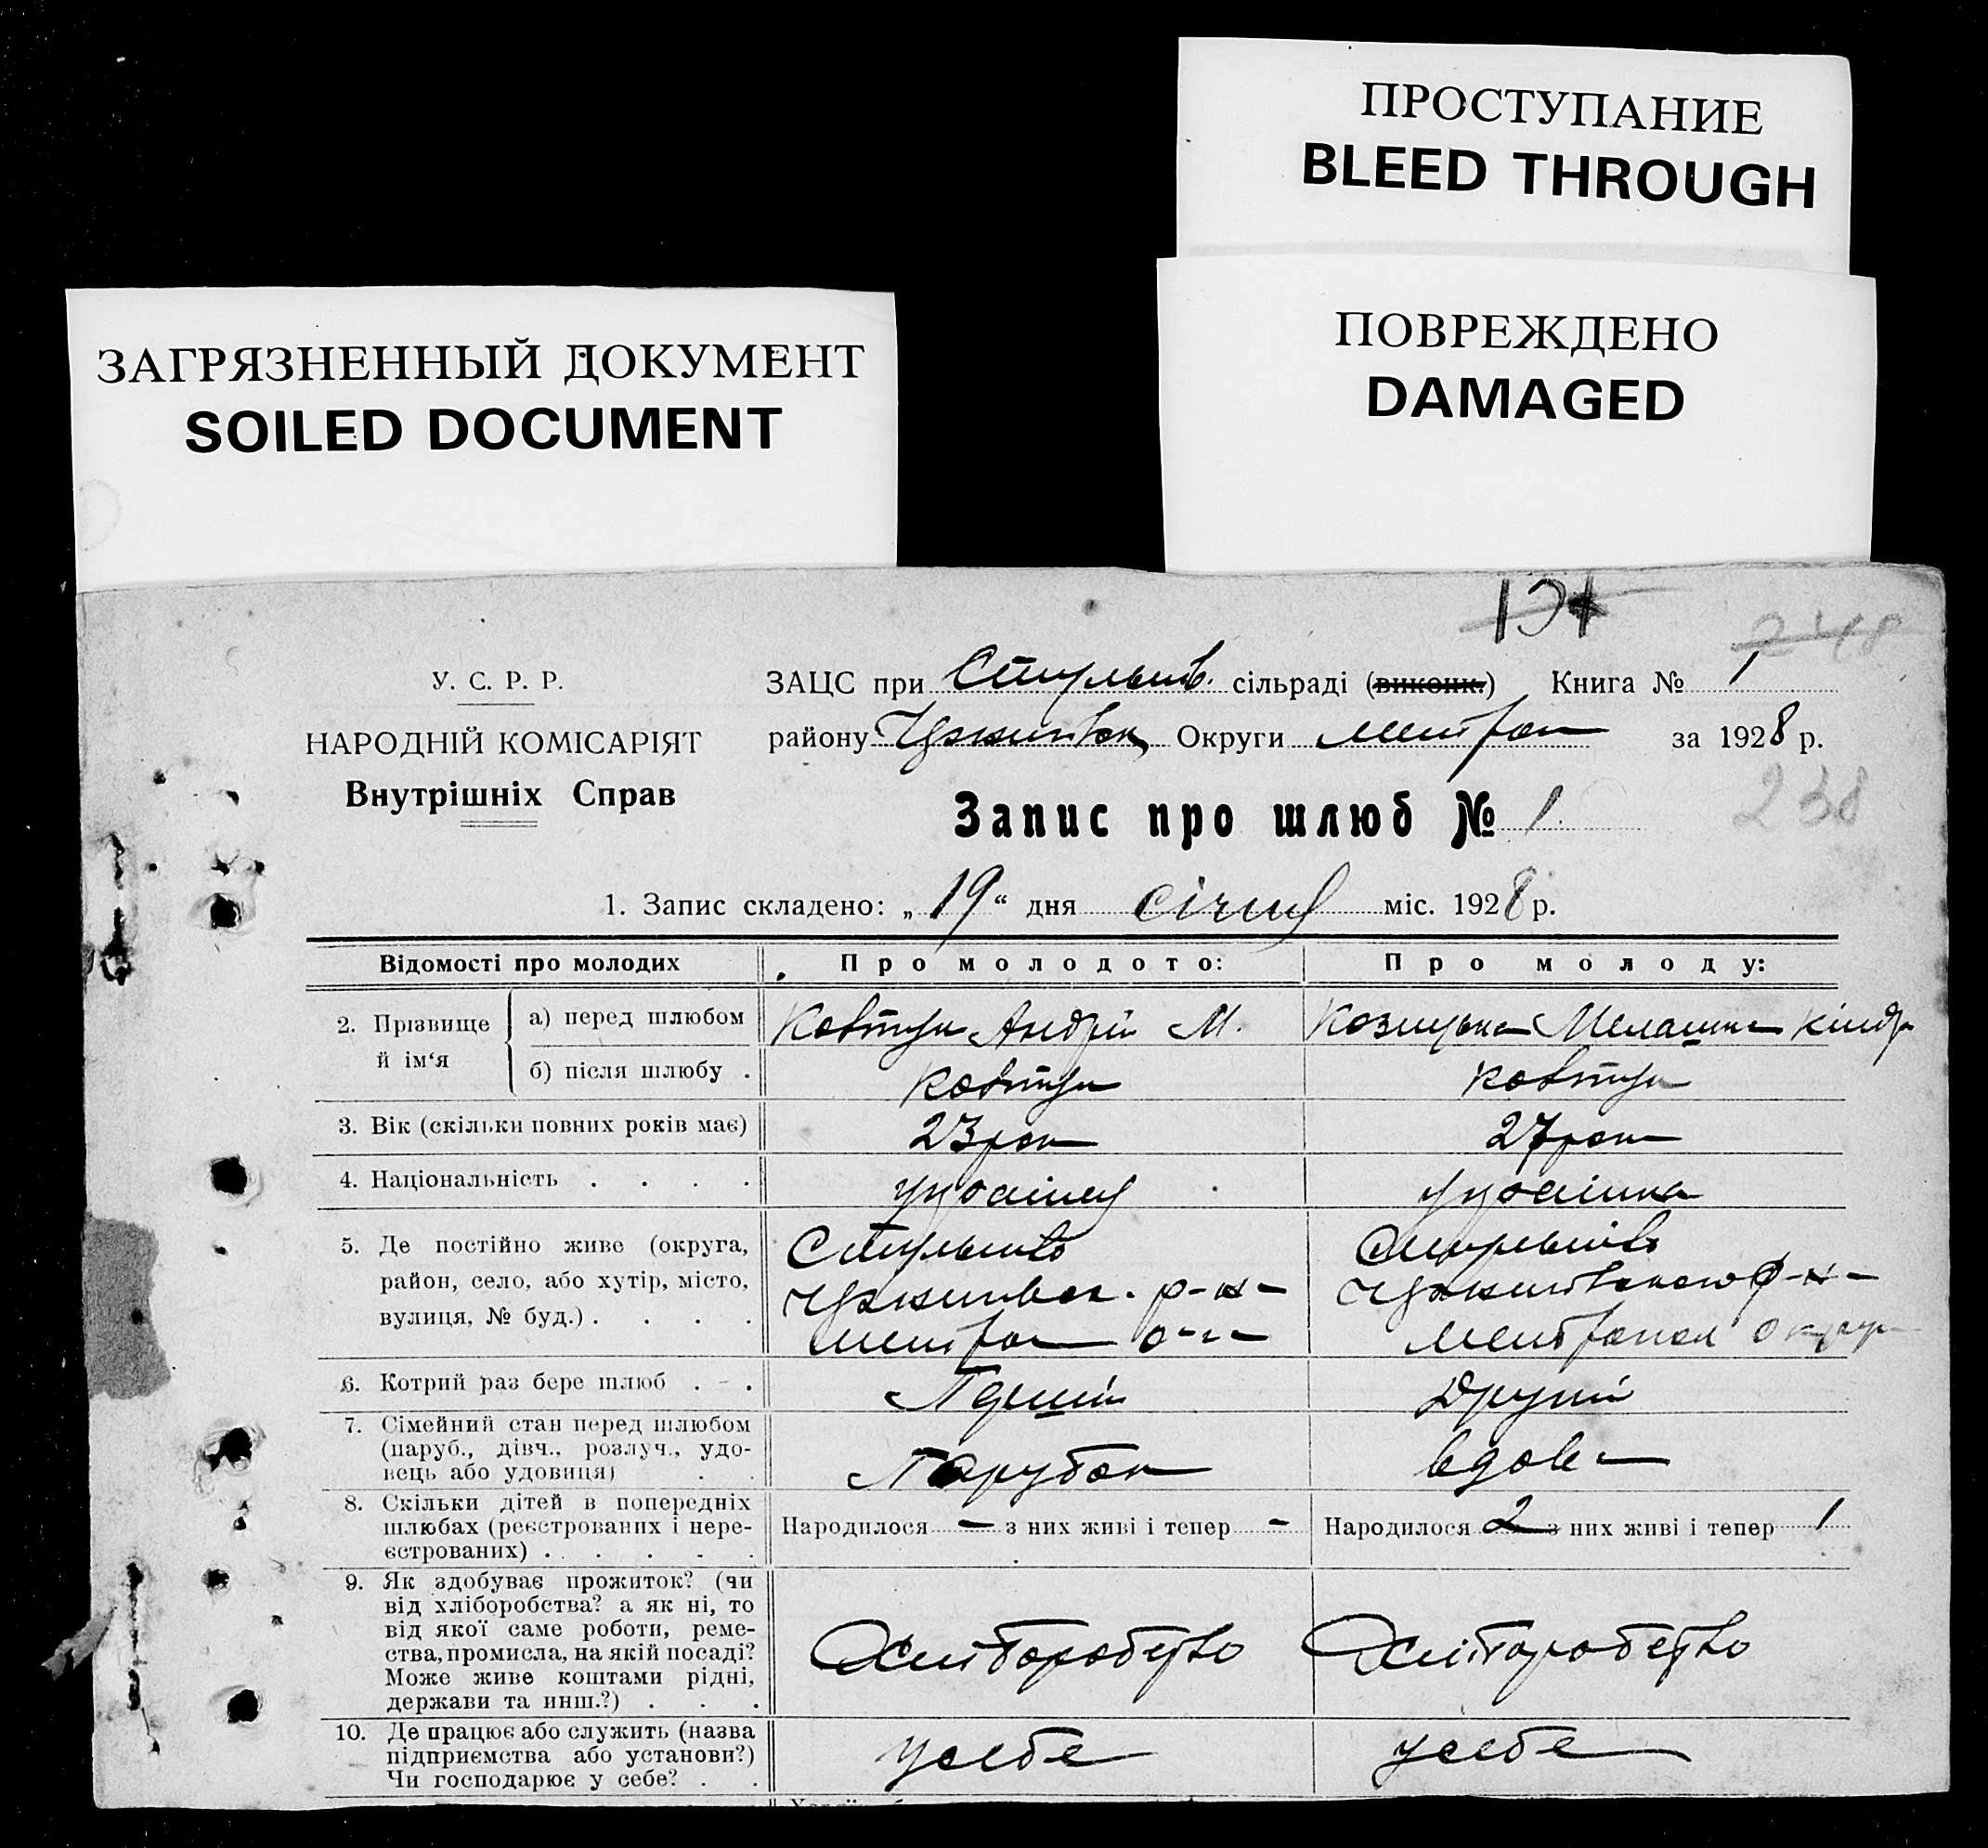 ПРОСТУПАНИЕ
BLEED THROUGH
ЗАГРЯЗНЕННЫЙ ДОКУМЕНТ
SOILED DOCUMENT
ПОВРЕЖДЕНО
DAMAGED
248
У. С. Р. Р.
НАРОДНІЙ КОМІСАРІЯТ
Внутрішніх Справ
ЗАЦС при Стульнів. сільраді (виконк.) Книга № 1
району Округи за 1928 р.
238
Запис про шлюб № 1.
1. Запис складено: „19“ дня січня міс. 1928 р.
Відомості про молодих Про молодого: Про молоду:
2. Прізвище й ім‘я а) перед шлюбом Ковтун Андрій М. Козицька Мелашка Кіндр
б) після шлюбу . Ковтун Ковтун
3. Вік (скільки повних років має) 23 рок 27 рок
4. Національність . . . . україне українка
5. Де постійно живе (округа,
район, село, або хутір, місто,
вулиця, № буд.) . . . .
р-н
6. Котрий раз бере шлюб . - . Перший Другий
7. Сімейний стан перед шлюбом
(паруб., дівч., розлуч., удо-
вець або удовиця) . . Парубок вдова
8. Скільки дітей в попередніх
шлюбах (реєстрованих і нере-
єстрованих) . . . . .
Народилося - з них живі і тепер - Народилося 2 з них живі і тепер 1
9. Як здобуває прожиток? (чи
від хліборобства? а як ні, то
від якої саме роботи, реме-
ства, промисла, на якій посаді?
Може живе коштами рідні,
держави та инш.?) . . .
Хліборобство Хліборобство
10. Де працює або служить (назва
підприємства або установи?)
Чи господарює у себе? . .
у себе у себе